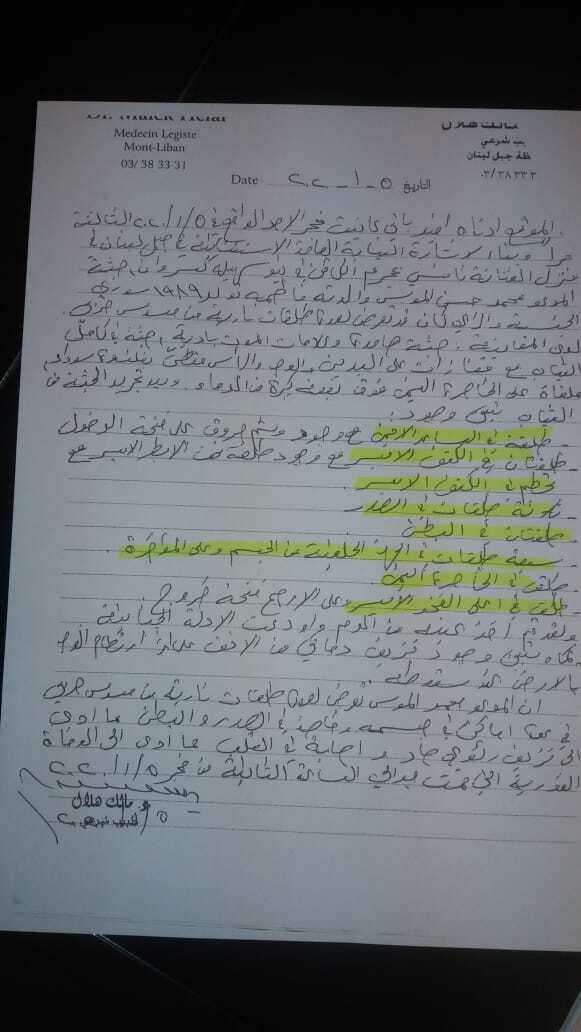 Dr. Malek Helal
Medecin Legiste
Mont-Liban
03/ 38 33 31
مالك هلال
بب شرعي
ظة جبل لبنان
٠٣/٣٨ ٣٣ ٣
Date
التاريخ ٥ - ١ - ٢٠٢٠
الموقع ادناه افيد باني عاينت فجر الاحد الواقع في ٢٠٢٠/١/٥ الثالثة
وبناء لاشارة النيابة العامة الاستئنافية في جبل لبنان في
منزل الفنانة نانسي عجرم الكائن في نيو سهيلة كسروان، جثة
المدعو محمد حسن الموسى والدته فاطمة تولد ١٩٨٩ سوري
الجنسية والذي كان قد تعرض لعدة طلقات نارية من مسدس حربي
لدى المعاينة: جثة هامدة وعلامات الموت بادية، جثة بكامل
الثياب مع قفازات على اليدين والوجه والرأس مغطى بقلنسوة سوداء
ملقاة على الخاصرة اليمنى فوق بقعة كبيرة من الدماء. وبعد تجريد الجثة من
الثياب تبين وجود:
- طلقة في الساعد الايمن مع وجود وشم حروق على فتحة الدخول
- طلقتان في الكتف الايسر مع وجود طلقة تحت الابط الايسر مع
تحطم في الكتف الايسر
- ثلاثة طلقات في الصدر
- طلقتان في البطن
- سبعة طلقات في الجهة الخلفية من الجسم وعلى المؤخرة
- طلق في الخاصرة اليمنى
- طلق في اعلى الفخذ الايسر وعلى الارجح فتحة خروج.
ولقد تم أخذ عينة من الدم واودعت الادلة الجنائية
كما تبين وجود نزيف دماتي من الانف على اثر ارتطام الوجه
بالارض عند سقوطه.
ان المدعو محمد الموسى تعرض لعدة طلقات نارية من مسدس حربي
في عدة اماكن في جسمه وخاصة في الصدر والبطن مما ادى
الى نزيف رئوي حاد و اصابة في القلب مما ادى الى الوفاة
الفورية التي تمت حوالي الساعة الثالثة من فجر ٢٠٢٠/١/٥
د. مالك هلال
طبيب شرعي